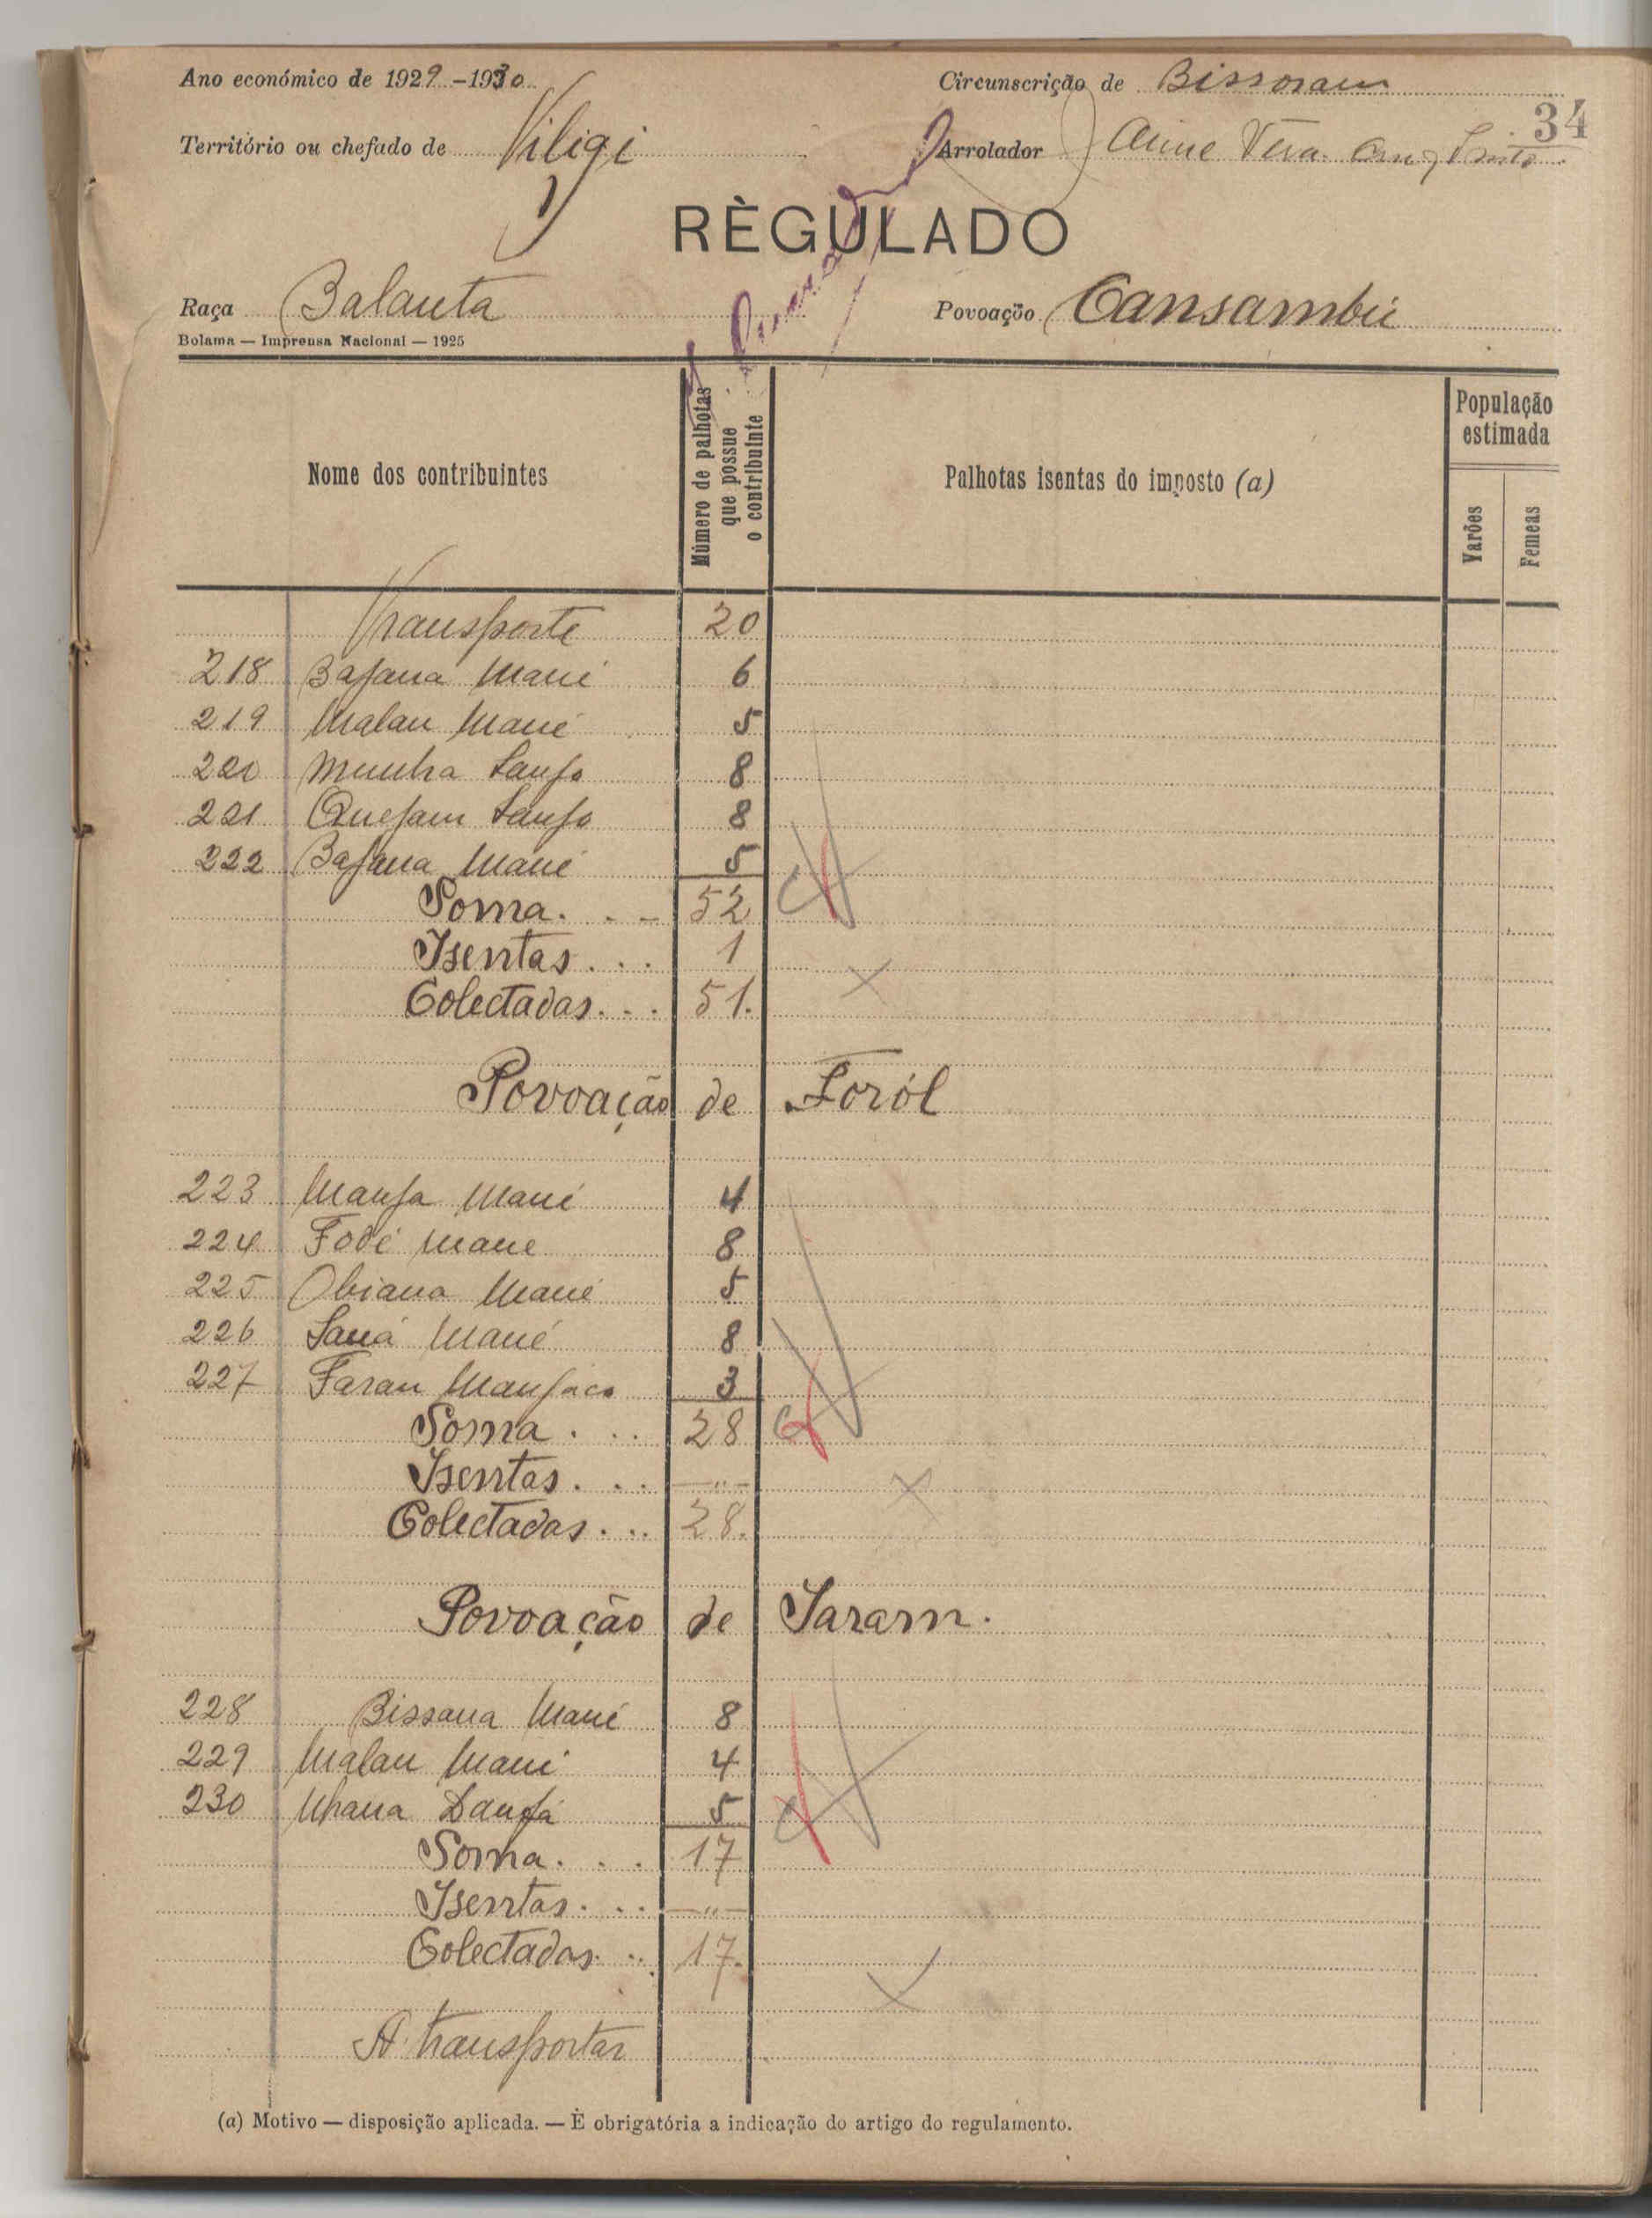 Ano económico de 1929-1930
Circunscrição de Bissoram
34
Território ou chefado de
Arrolador
RÈGULADO
Raça Balanta
Povoação Cansambú
Bolama — Imprensa Nacional — 1925
Nome dos contribuintes
Número de palhotas que possue o contribuinte
Palhotas isentas do imposto (a)
População estimada
Varões
Femeas
Transporte 20
218 Bajana Mané 6
219 Malan Mané 5
220 8
221 Quejam 8
222 Bajana Mané 5
Soma... 52
Isentas... 1
Colectadas... 51.
Povoação de
223 Manja Mané 4
224 Fodé Mané 8
225 Mané 5
226 Saná Mané 8
227 Faran Manjaco 3
Soma... 28
Isentas... —"—
Colectadas... 28.
Povoação de
228 Bissana Mané 8
229 Malan Mané 4
230 5
Soma... 17
Isentas... —"—
Colectadas... 17.
A transportar
(a) Motivo — disposição aplicada. — É obrigatória a indicação do artigo do regulamento.